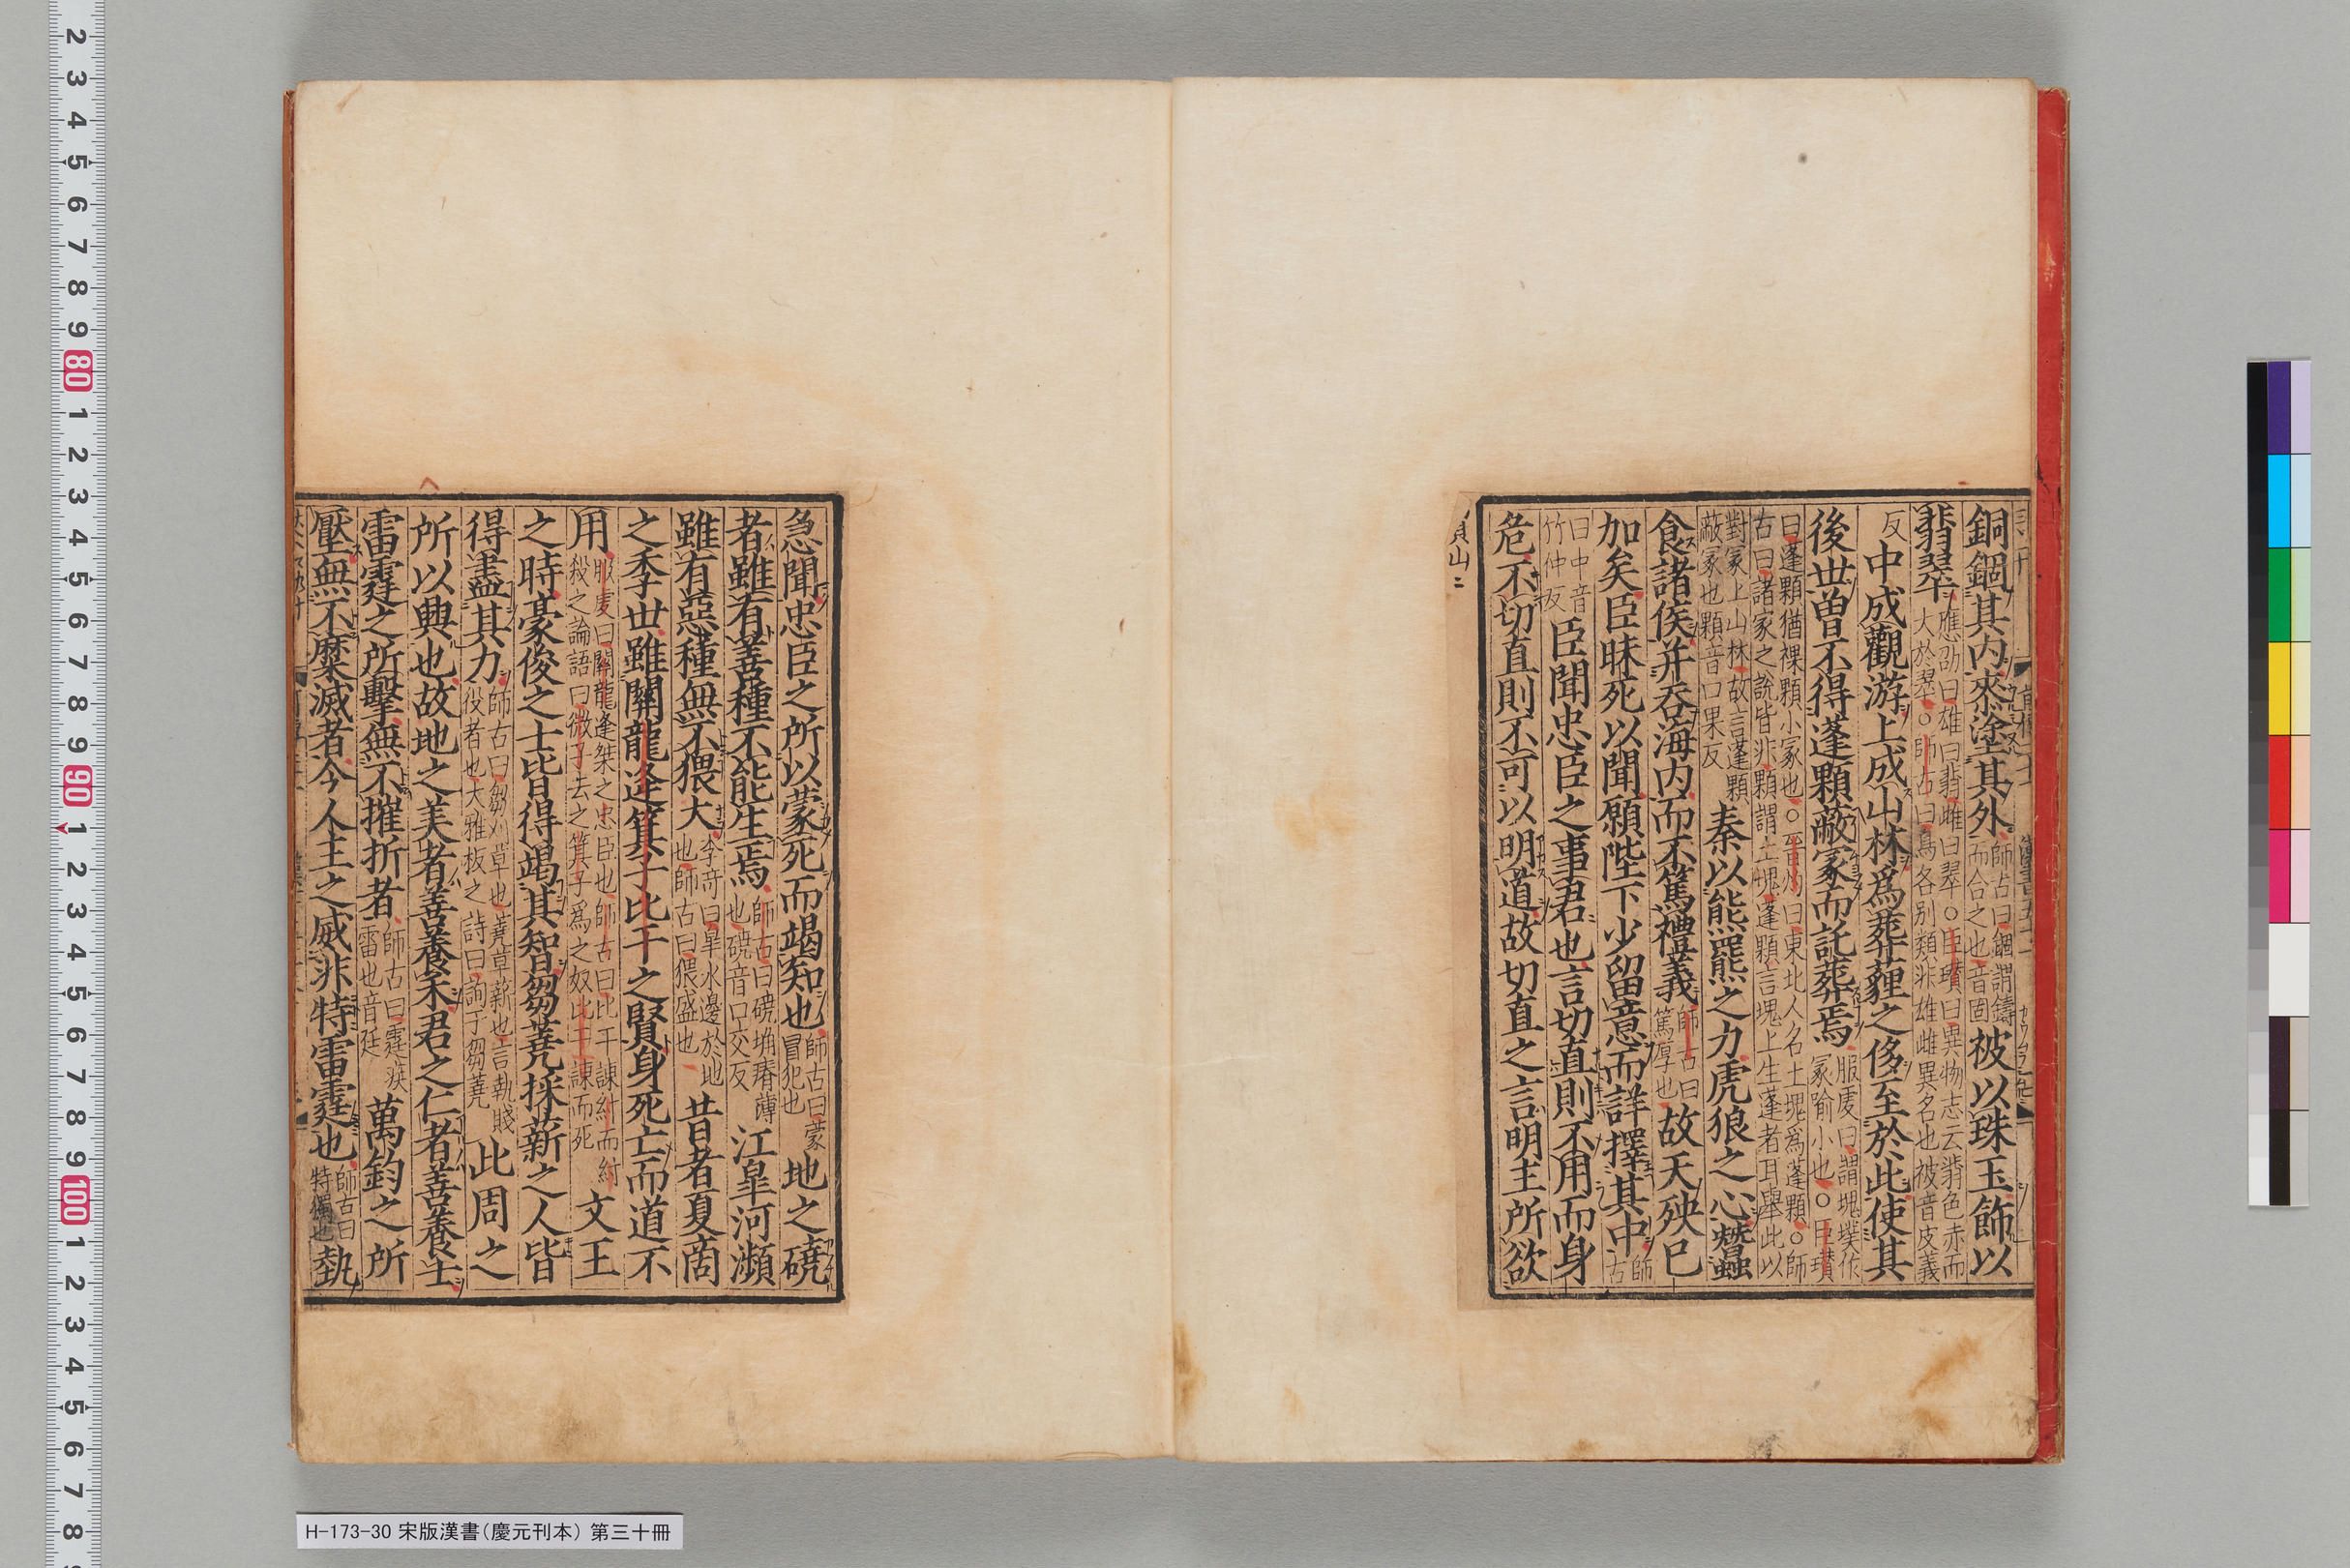 銅錮其內桼塗其外師古曰錮謂鑄而合之也音固被以珠玉飾以
翡翠應劭曰雄曰翡雌曰翠○臣瓚曰異物志云翡色赤而大於翠○師古曰鳥各別類非雄雌異名也被音皮義
反中成觀游上成山林爲葬薶之侈至於此使其
後世曾不得蓬顆蔽冢而託葬焉服虔曰謂塊墣作冢喻小也○臣瓚
曰蓬顆猶裸顆小冢也○晉灼曰東北人名土塊爲蓬顆○師古曰諸家之說皆非顆謂土塊蓬顆言塊上生蓬者耳舉此以
對冢上山林故言蓬顆蔽冢也顆音口果反秦以熊羆之力虎狼之心蠶
食諸侯并吞海內而不篤禮義師古曰篤厚也故天殃已
加矣臣昧死以聞願陛下少留意而詳擇其中師古
曰中音竹仲反臣聞忠臣之事君也言切直則不用而身
危不切直則不可以明道故切直之言明主所欲
急聞忠臣之所以蒙死而竭知也師古曰蒙冒犯也地之磽
者雖有善種不能生焉師古曰磽埆瘠薄也磽音口交反江皐河瀕
雖有惡種無不猥大李奇曰皐水邊於地也師古曰猥盛也昔者夏商
之季世雖關龍逢箕子比干之賢身死亡而道不
用服虔曰關龍逢桀之忠臣也師古曰比干諫紂而紂殺之論語曰微子去之箕子爲之奴比干諫而死文王
之時豪俊之士皆得竭其智芻蕘採薪之人皆
得盡其力師古曰芻刈草也蕘草薪也言執賤役者也大雅板之詩曰詢于芻蕘此周之
所以興也故地之美者善養禾君之仁者善養士
雷霆之所擊無不摧折者師古曰霆疾雷也音廷萬鈞之所
壓無不糜滅者今人主之威非特雷霆也師古曰特獨也執
H-173-30 宋版漢書(慶元刊本) 第三十冊